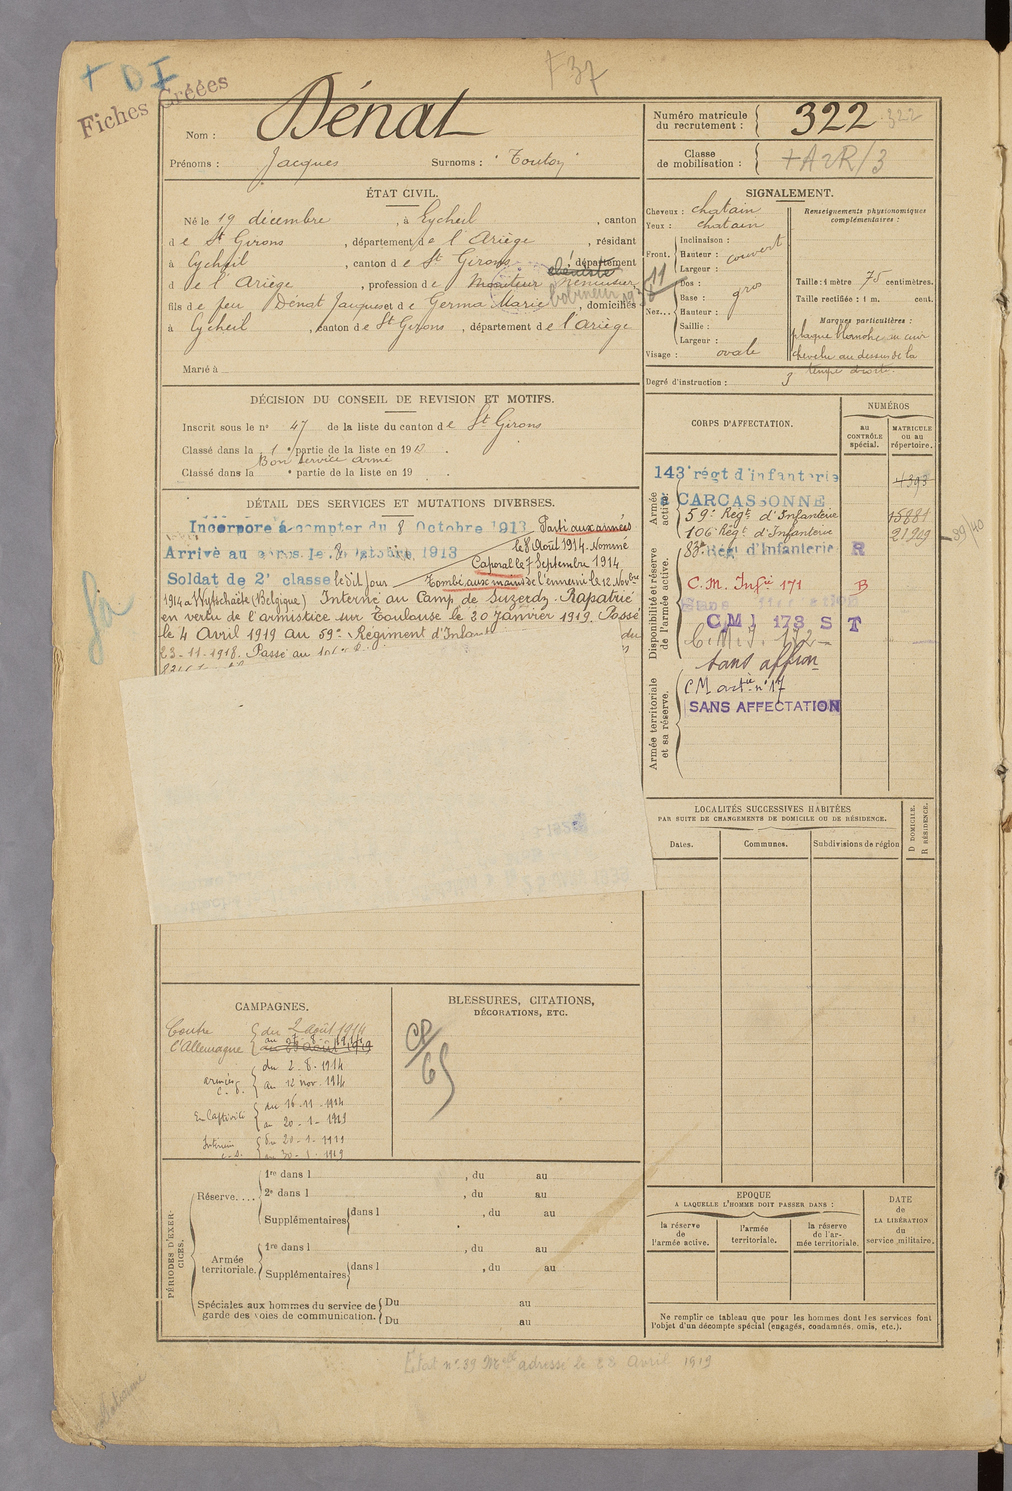 + D I
Fiches Créées
F 37
Nom : Dénat
Prénoms : Jacques Surnoms :
Numéro matricule du recrutement : 322 322
Classe de mobilisation :
ÉTAT CIVIL.
Né le 19 décembre , à Eycheil , canton
de St Girons , département de l'Ariège , résidant
à Eycheil , canton de St Girons , département
de l'Ariège , profession de
fils de feu Dénat Jacques et de Germa Marie , domiciliés
à Eycheil , canton de St Girons , département de l'Ariège
Marié à
SIGNALEMENT.
Cheveux : chatain
Yeux : chatain
Front. Inclinaison :
Hauteur : couvert
Largeur :
Nez... Dos :
Base : gros
Hauteur :
Saillie :
Largeur :
Visage : ovale
Renseignements physionomiques complémentaires :
Taille : 1 mètre 75 centimètres.
Taille rectifiée : 1 m. cent.
Marques particulières :
chevelu au dessus de la
tempe droite.
Degré d'instruction : 3
DÉCISION DU CONSEIL DE REVISION ET MOTIFS.
Inscrit sous le n° 47 de la liste du canton de St Girons
Classé dans la 1e partie de la liste en 1913 .
Bon service armé
Classé dans la e partie de la liste en 19 .
DÉTAIL DES SERVICES ET MUTATIONS DIVERSES.
Incorporé à compter du 8 Octobre 1913 Parti aux armées
Arrivé au corps le 8 octobre 1913 le 8 Août 1914. Nommé
Caporal le 7 Septembre 1914
Soldat de 2e classe le dit jour Tombé aux mains de l'ennemi le 12 Novbre
1914 à Wytschaëte (Belgique) Interné au Camp de Suzerdy. Rapatrié
en vertu de l'armistice sur Toulouse le 20 Janvier 1919. Passé
le 4 Avril 1919 au 59e Régiment d'Infant du
23-11-1918. Passé au 106e
CORPS D'AFFECTATION.
NUMÉROS
au CONTRÔLE spécial.
MATRICULE ou au répertoire.
Armée active.
143e régt d'infanterie 4393
à CARCASSONNE
59e Régt d'Infanterie 15881
106e Régt d'Infanterie 21219 89/40
Disponibilité et réserve de l'armée active.
83e Régt d'Infanterie R
C.M. Infie 171 B
Sans affectation
CMI 173 S T
C.M.I. 172
Sans affon
Armée territoriale et sa réserve.
CM artie n° 17
SANS AFFECTATION
LOCALITÉS SUCCESSIVES HABITÉES
PAR SUITE DE CHANGEMENTS DE DOMICILE OU DE RÉSIDENCE.
Dates. Communes. Subdivisions de région
D DOMICILE.
R RÉSIDENCE.
CAMPAGNES.
Contre l'Allemagne du 2 août 1914
au 23 août 1919
du 2-8-1914
armées au 12 nov. 1914
En Captivité du 16-11-1914
au 20-1-1919
Intérieur du 20-1-1919
au 30-1-1919
BLESSURES, CITATIONS,
DÉCORATIONS, ETC.
CP/65
PÉRIODES D'EXERCICES.
Réserve....
1re dans l , du au
2e dans l , du au
Supplémentaires dans l , du au
Armée territoriale.
1re dans l , du au
Supplémentaires dans l , du au
Spéciales aux hommes du service de garde des voies de communication.
Du au
Du au
EPOQUE
A LAQUELLE L'HOMME DOIT PASSER DANS :
la réserve de l'armée active.
l'armée territoriale.
la réserve de l'armée territoriale.
DATE de LA LIBÉRATION du service militaire.
Ne remplir ce tableau que pour les hommes dont les services font
l'objet d'un décompte spécial (engagés, condamnés, omis, etc.).
Etat n° 39 Mle adressé le 28 Avril 1919